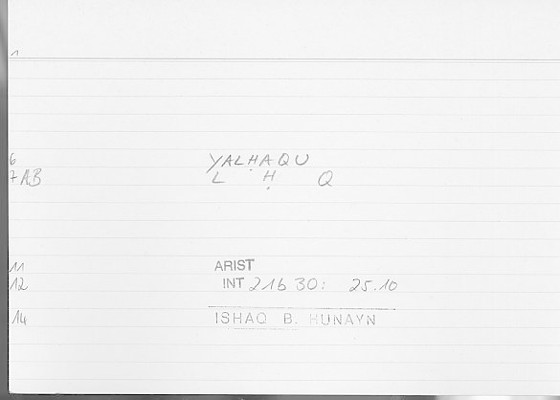 1
6 YALḤAQU
7 AB L Ḥ Q
11 ARIST
12 INT 21b 30: 25.10
14 ISHAQ B. HUNAYN